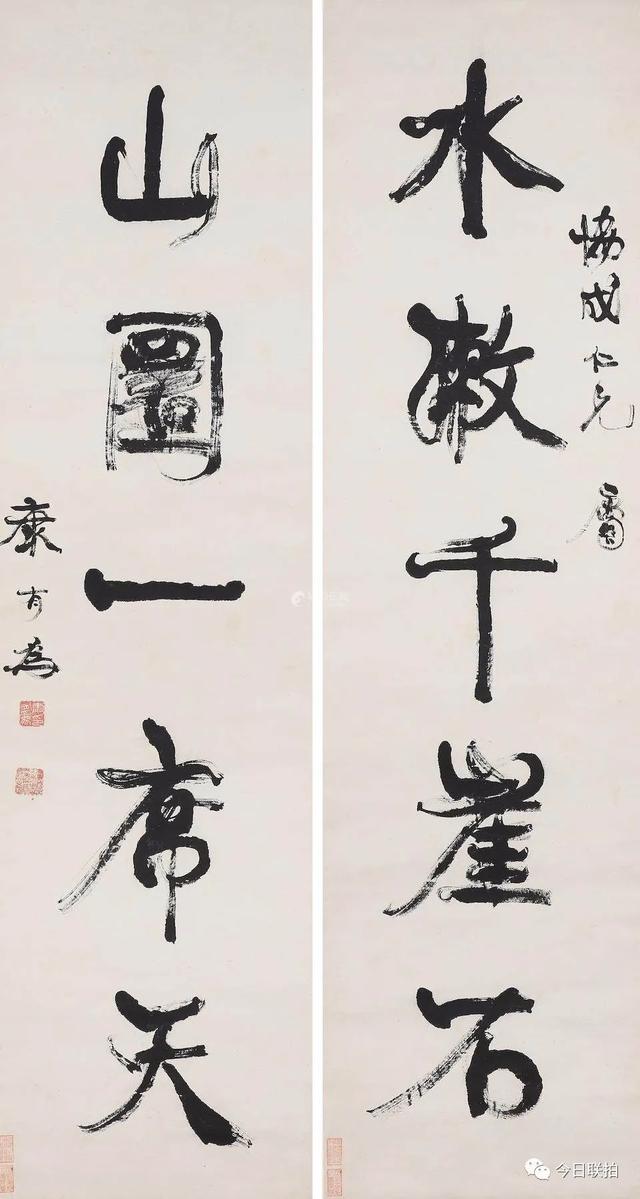 恊成仁兄 屬
水千崖石
山圍一席天
康有為
今日联拍